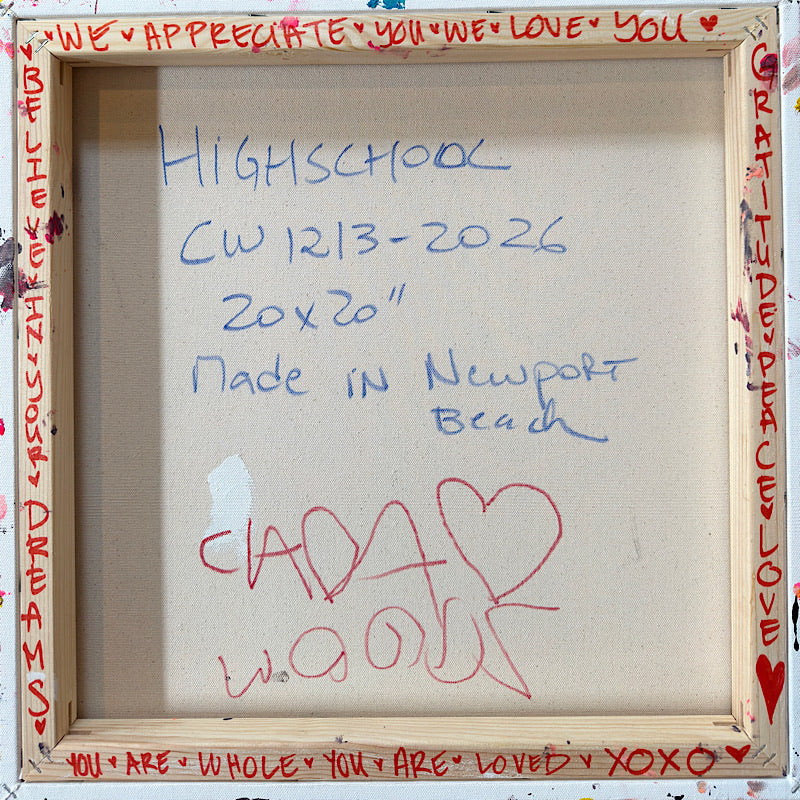 ♥ WE ♥ APPRECIATE ♥ YOU ♥ WE ♥ LOVE ♥ YOU ♥
♥ BELIEVE ♥ IN ♥ YOUR ♥ DREAMS ♥
HIGHSCHOOL
CW 1213-2026
20x20"
Made in Newport
Beach
CADA ♥
WOODS
GRATITUDE ♥ PEACE ♥ LOVE ♥
YOU ♥ ARE ♥ WHOLE ♥ YOU ♥ ARE ♥ LOVED ♥ XOXO ♥